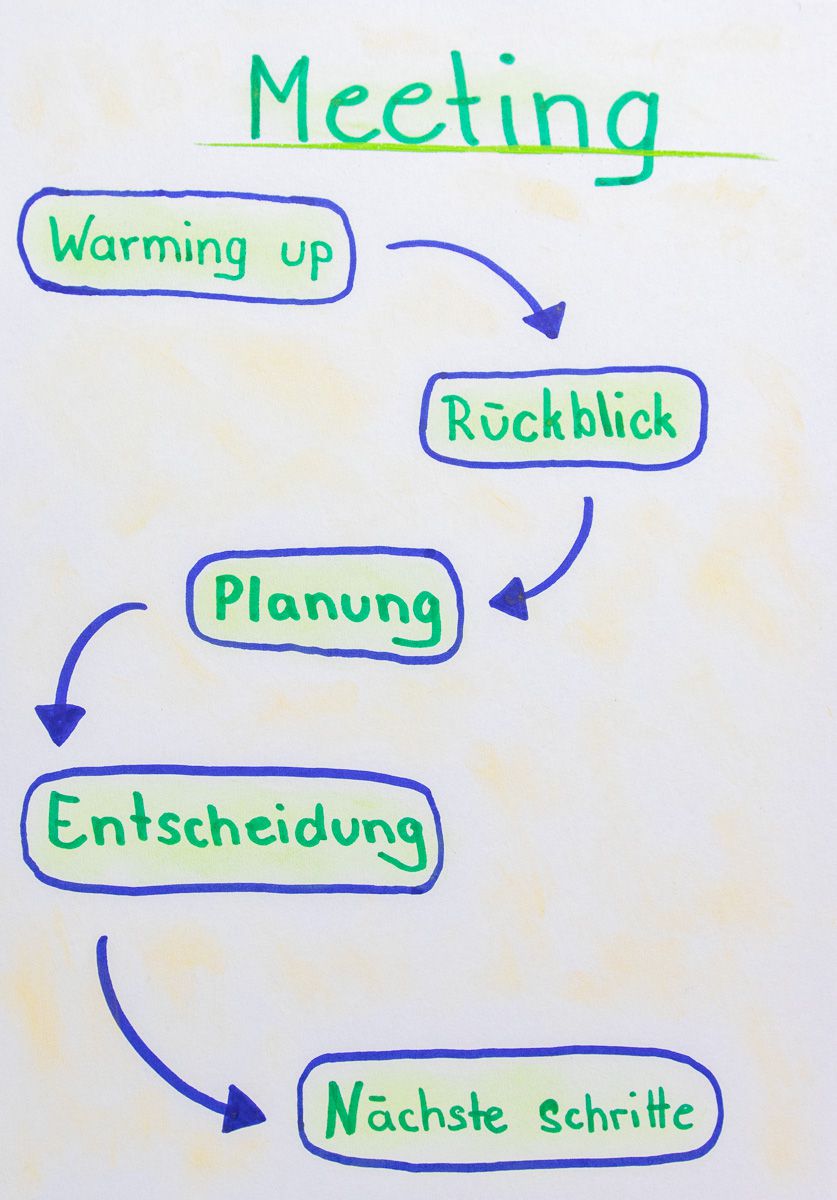 Meeting
Warming up
Rückblick
Planung
Entscheidung
Nächste schritte